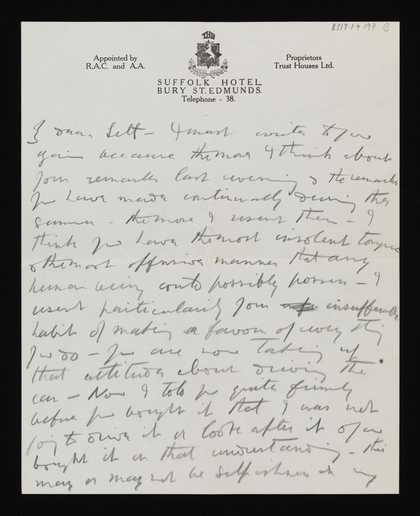 Appointed by
R.A.C. and A.A.
Proprietors
Trust Houses Ltd.
SUFFOLK HOTEL,
BURY ST. EDMUNDS.
Telephone - 38.
I must write to you
again because the more I think about
your remarks last evening & the remarks
you have made continually during this
summer - the more I resent them - I
think you have the most insolent tongue
& the most offensive manner that any
human being could possibly possess - I
resent particularly your insufferable
habit of making a favour of everything
you do - you are now taking up
that attitude about driving the
car - Now I told you quite firmly
before you bought it that I was not
going to drive it or look after it & you
bought it on that understanding - this
may or may not be selfishness on my